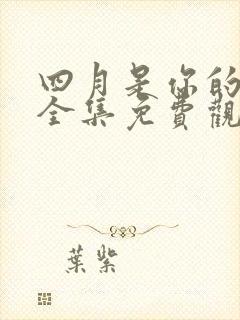 四月是你的
全集免費觀
葉紫